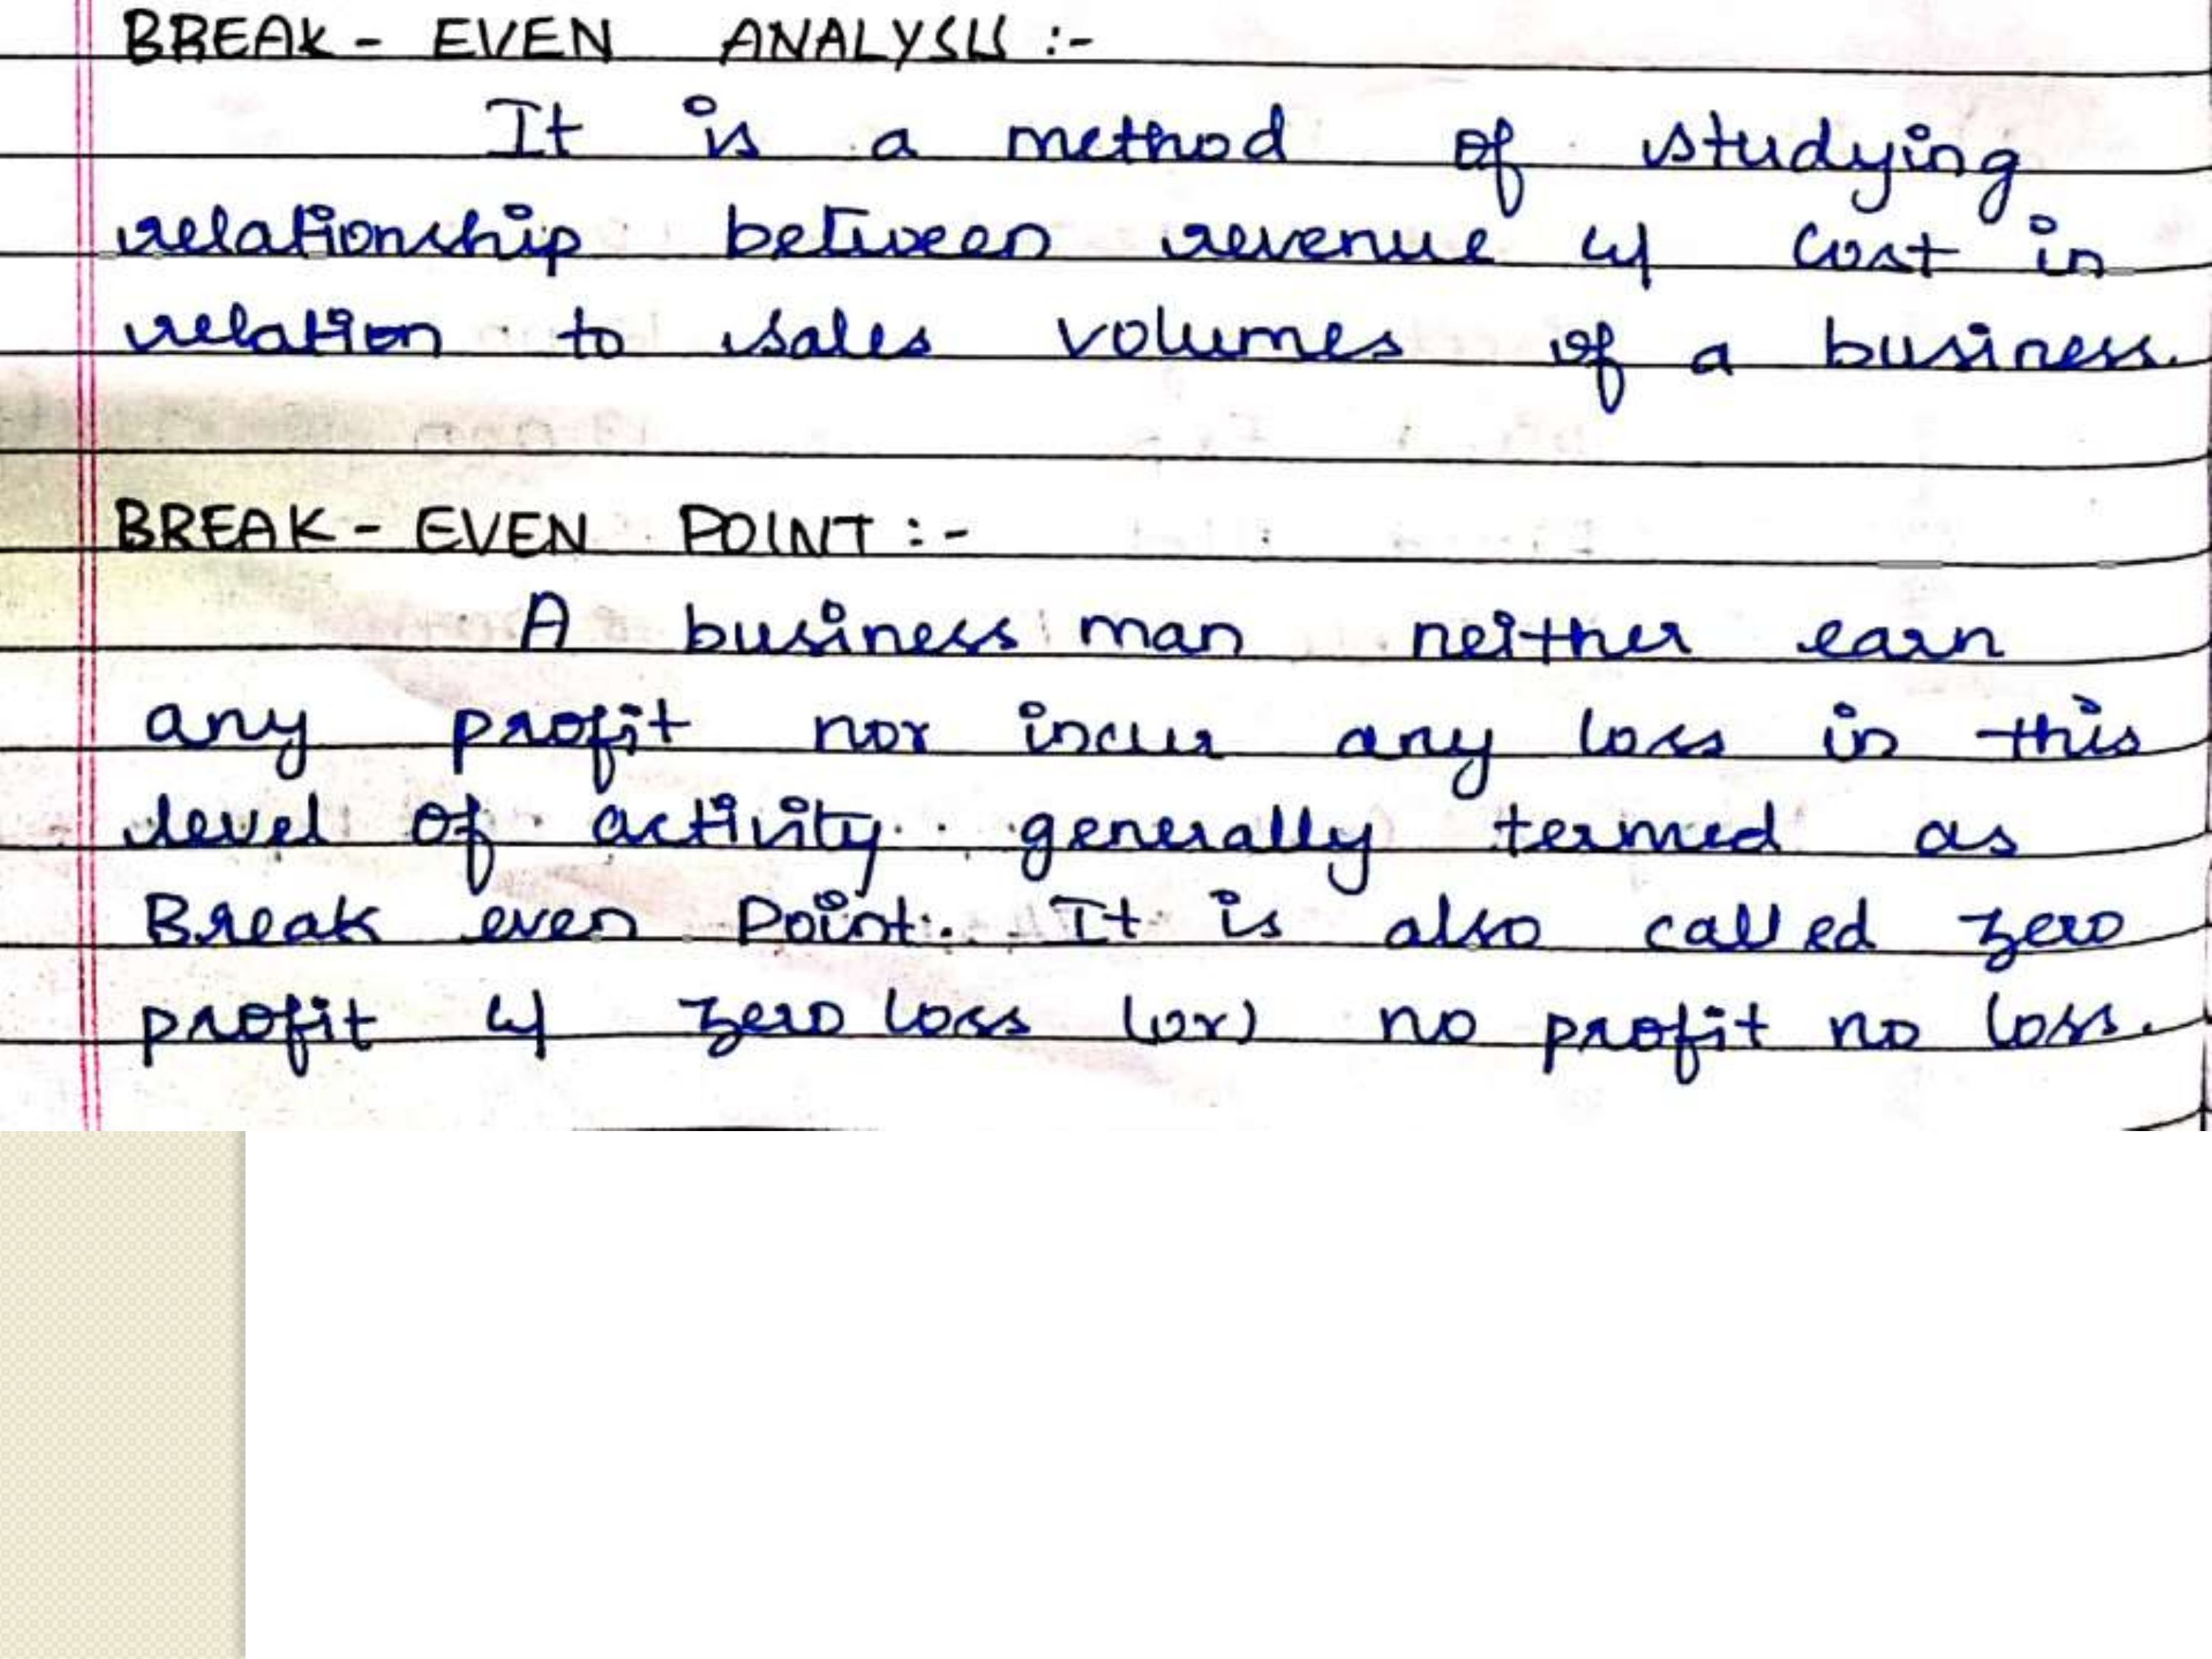 BREAK - EVEN ANALYSIS :-
It is a method of studying
relationship between revenue & cost in
relation to sales volumes of a business.
BREAK - EVEN POINT :-
A business man neither earn
any profit nor incur any loss in this
level of activity generally termed as
Break even Point. It is also called zero
profit & zero loss (or) no profit no loss.